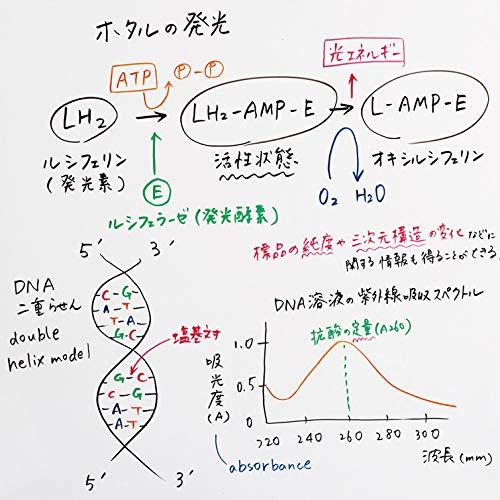 ホタルの発光
光エネルギー
ATP
P-P
LH2
LH2-AMP-E
L-AMP-E
ルシフェリン
(発光素)
活性状態
オキシルシフェリン
E
O2 H2O
ルシフェラーゼ(発光酵素)
標品の純度や三次元構造の変化などに
関する情報も得ることができる
5' 3'
DNA
二重らせん
double
helix model
C-G
A-T
T-A
G-C
塩基対
G-C
C-G
A-T
A-T
5' 3'
DNA溶液の紫外線吸収スペクトル
抗酸の定量(A260)
吸光度(A)
absorbance
1.0
0.5
0
220 260 300
波長(mm)